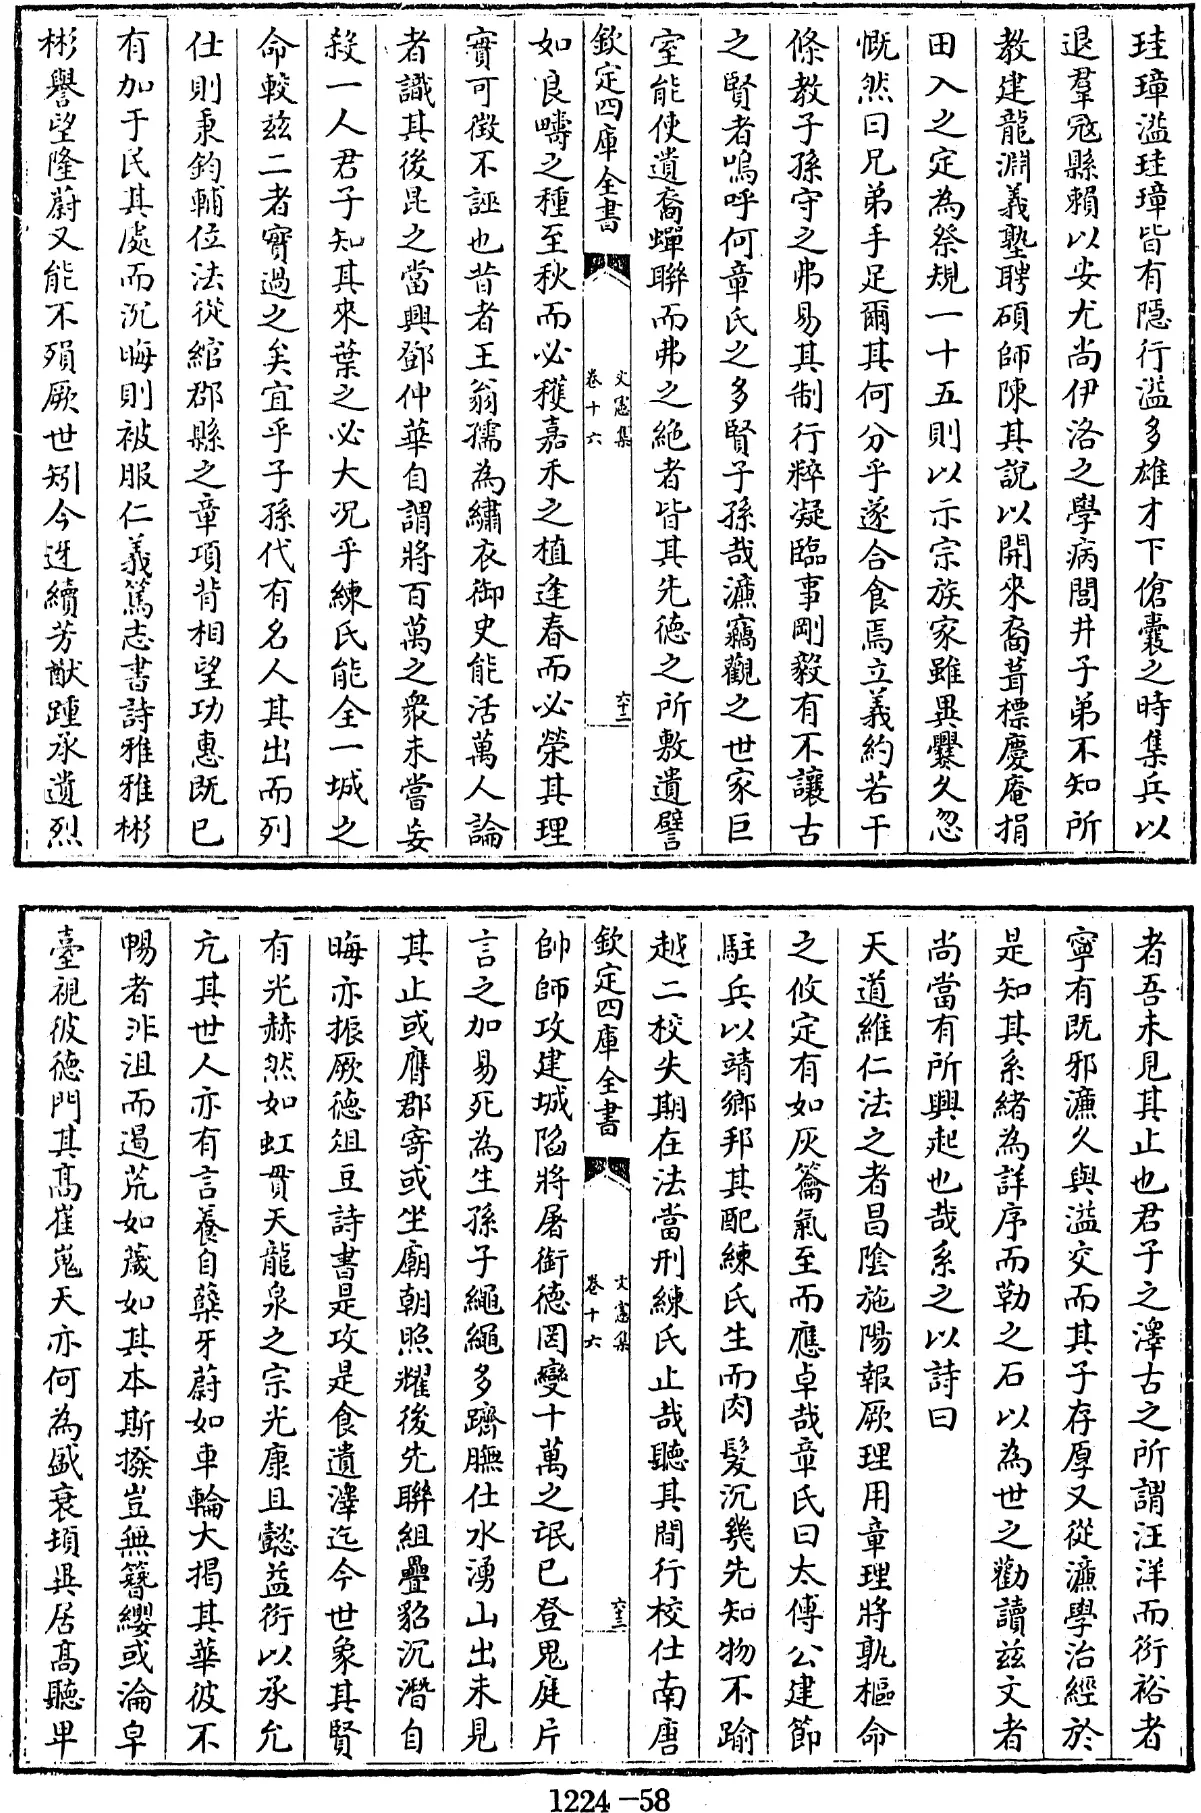 珪璋溢珪璋皆有隱行溢多雄才下傖囊之時集兵以
退羣冦縣賴以安尤尚伊洛之學病閭井子弟不知所
教建龍淵義塾聘碩師陳其說以開來裔葺標慶庵捐
田入之定為祭規一十五則以示宗族家雖異爨久忽
慨然曰兄弟手足爾其何分乎遂合食焉立義約若干
條教子孫守之弗易其制行粹凝臨事剛毅有不讓古
之賢者嗚呼何章氏之多賢子孫哉濂竊觀之世家巨
室能使遺裔蟬聨而弗之絶者皆其先德之所敷遺譬
欽定四庫全書
文憲集
卷十六
六十二
如良疇之種至秋而必穫嘉禾之植逢春而必榮其理
實可徵不誣也昔者王翁孺為繡衣御史能活萬人論
者識其後昆之當興鄧仲華自謂將百萬之衆未嘗妄
殺一人君子知其來葉之必大況乎練氏能全一城之
命較兹二者實過之矣宜乎子孫代有名人其出而列
仕則秉鈞輔位法從綰郡縣之章項背相望功惠既已
有加于民其處而沉晦則被服仁義篤志書詩雅雅彬
彬譽望隆蔚又能不殞厥世矧今迓續芳猷踵承遺烈
者吾未見其止也君子之澤古之所謂汪洋而衍裕者
寧有既邪濂久與溢交而其子存厚又從濂學治經於
是知其系緒為詳序而勒之石以為世之勸讀兹文者
尚當有所興起也哉系之以詩曰
天道維仁法之者昌陰施陽報厥理用章理將孰樞命
之攸定有如灰籥氣至而應卓哉章氏曰太傅公建節
駐兵以靖鄉邦其配練氏生而肉髪沉幾先知物不踰
越二校失期在法當刑練氏止哉聽其間行校仕南唐
欽定四庫全書
文憲集
卷十六
六十三
帥師攻建城陷將屠銜德罔變十萬之氓已登鬼庭片
言之加易死為生孫子繩繩多躋膴仕水湧山出未見
其止或膺郡寄或坐廟朝照耀後先聨組疊貂沉潛自
晦亦振厥德俎豆詩書是攻是食遺澤迄今世象其賢
有光赫然如虹貫天龍泉之宗光康且懿益衍以承允
亢其世人亦有言養自蘖牙蔚如車輪大揭其華彼不
暢者泮沮而遏荒如薉如其本斯撥豈無簪纓或淪皁
臺視彼德門其髙崔嵬天亦何為盛衰頓異居髙聽卑
1224-58